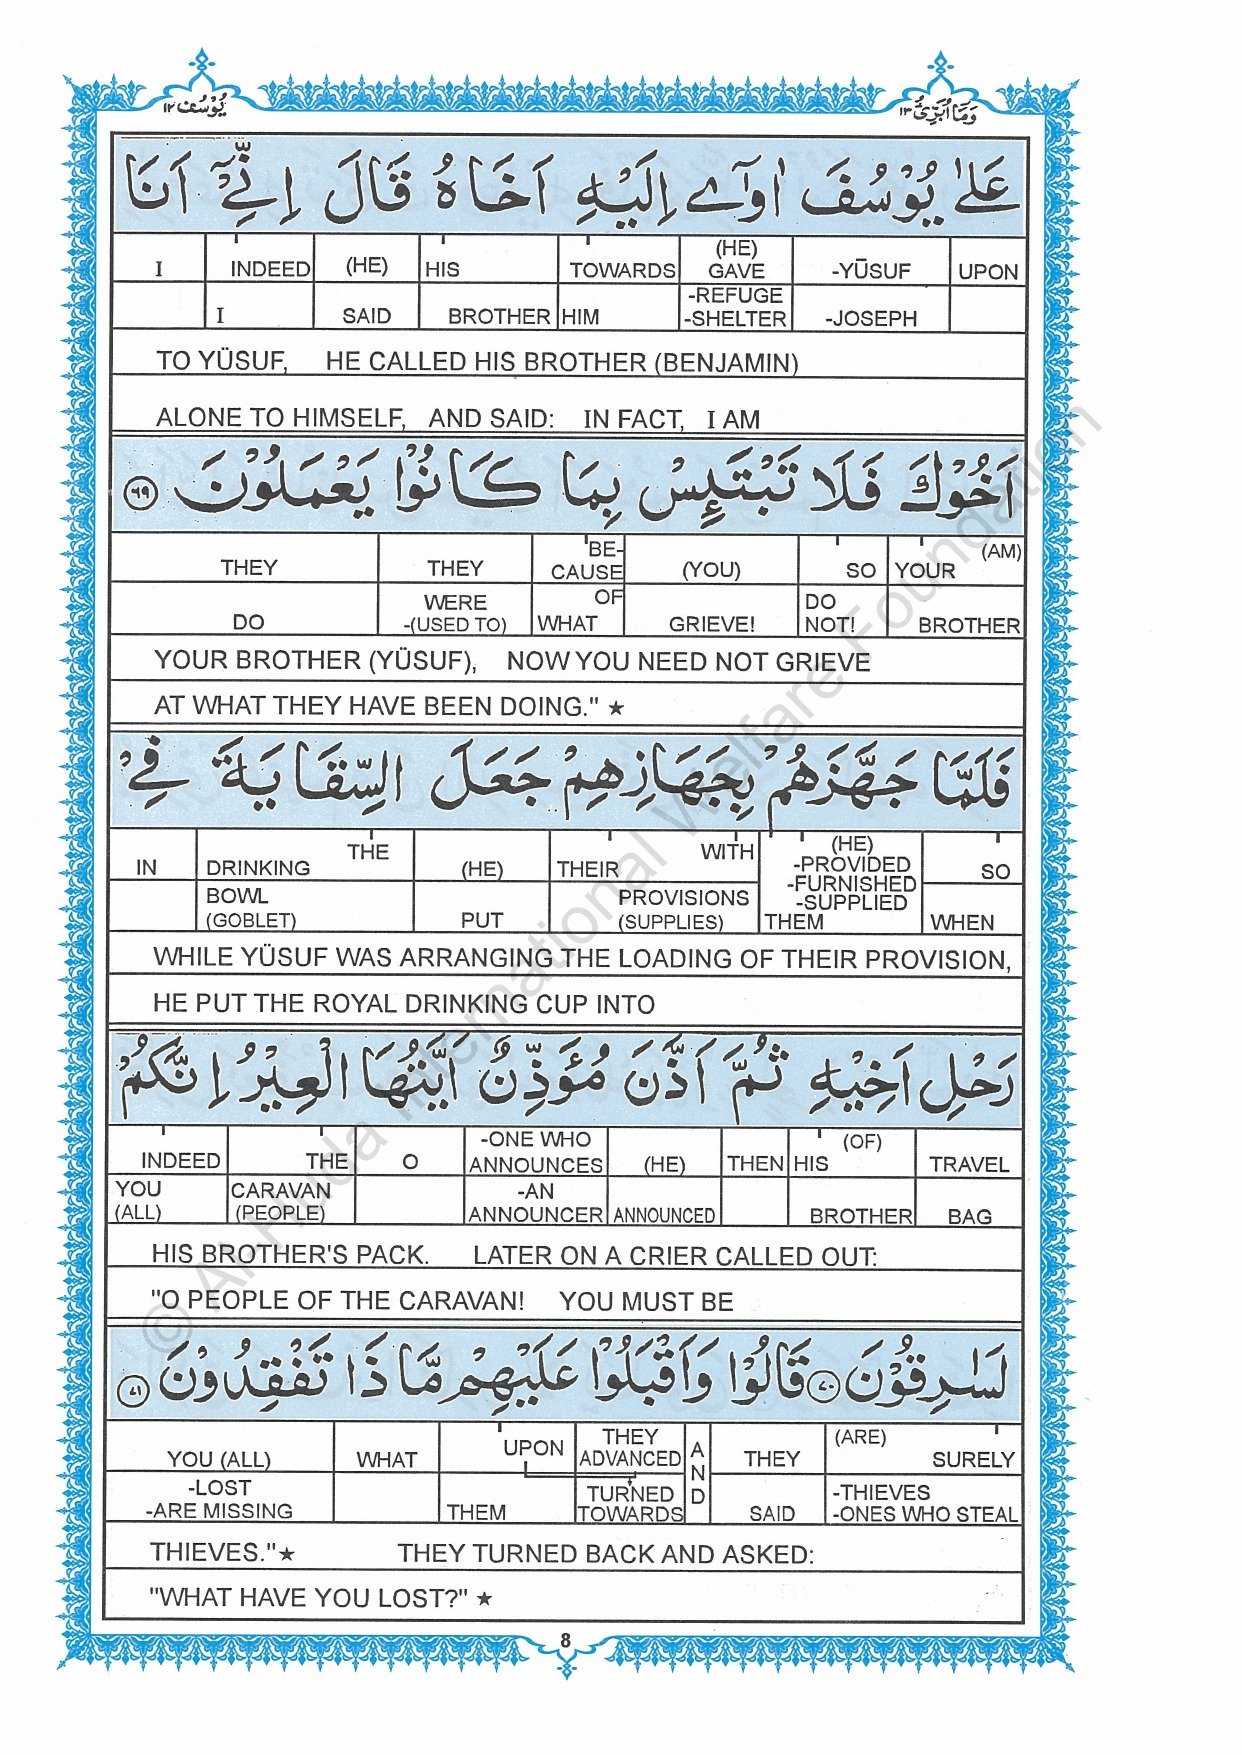 وَمَآ اُبَرِّئُ ١٣
يُوْسُف ١٢
عَلٰى يُوْسُفَ اٰوٰٓى اِلَيْهِ اَخَاهُ قَالَ اِنِّيْٓ اَنَا
I INDEED (HE) HIS TOWARDS (HE) GAVE -YŪSUF UPON
I SAID BROTHER HIM -REFUGE -SHELTER -JOSEPH
TO YÜSUF, HE CALLED HIS BROTHER (BENJAMIN)
ALONE TO HIMSELF, AND SAID: IN FACT, I AM
اَخُوْكَ فَلَا تَبْتَئِسْ بِمَا كَانُوْا يَعْمَلُوْنَ ٦٩
THEY THEY BE-CAUSE (YOU) SO YOUR (AM)
DO WERE -(USED TO) OF WHAT GRIEVE! DO NOT! BROTHER
YOUR BROTHER (YÜSUF), NOW YOU NEED NOT GRIEVE
AT WHAT THEY HAVE BEEN DOING." ★
فَلَمَّا جَهَّزَهُمْ بِجَهَازِهِمْ جَعَلَ السِّقَايَةَ فِيْ
IN DRINKING THE (HE) THEIR WITH (HE) -PROVIDED -FURNISHED -SUPPLIED SO
BOWL (GOBLET) PUT PROVISIONS (SUPPLIES) THEM WHEN
WHILE YÜSUF WAS ARRANGING THE LOADING OF THEIR PROVISION,
HE PUT THE ROYAL DRINKING CUP INTO
رَحْلِ اَخِيْهِ ثُمَّ اَذَّنَ مُؤَذِّنٌ اَيَّتُهَا الْعِيْرُ اِنَّكُمْ
INDEED THE O -ONE WHO ANNOUNCES (HE) THEN HIS (OF) TRAVEL
YOU (ALL) CARAVAN (PEOPLE) -AN ANNOUNCER ANNOUNCED BROTHER BAG
HIS BROTHER'S PACK. LATER ON A CRIER CALLED OUT:
"O PEOPLE OF THE CARAVAN! YOU MUST BE
لَسٰرِقُوْنَ ٧٠ قَالُوْا وَاَقْبَلُوْا عَلَيْهِمْ مَّا ذَا تَفْقِدُوْنَ ٧١
YOU (ALL) WHAT UPON THEY ADVANCED AND THEY (ARE) SURELY
-LOST -ARE MISSING THEM TURNED TOWARDS SAID -THIEVES -ONES WHO STEAL
THIEVES."★ THEY TURNED BACK AND ASKED:
"WHAT HAVE YOU LOST?" ★
8
© Al-Huda International Welfare Foundation